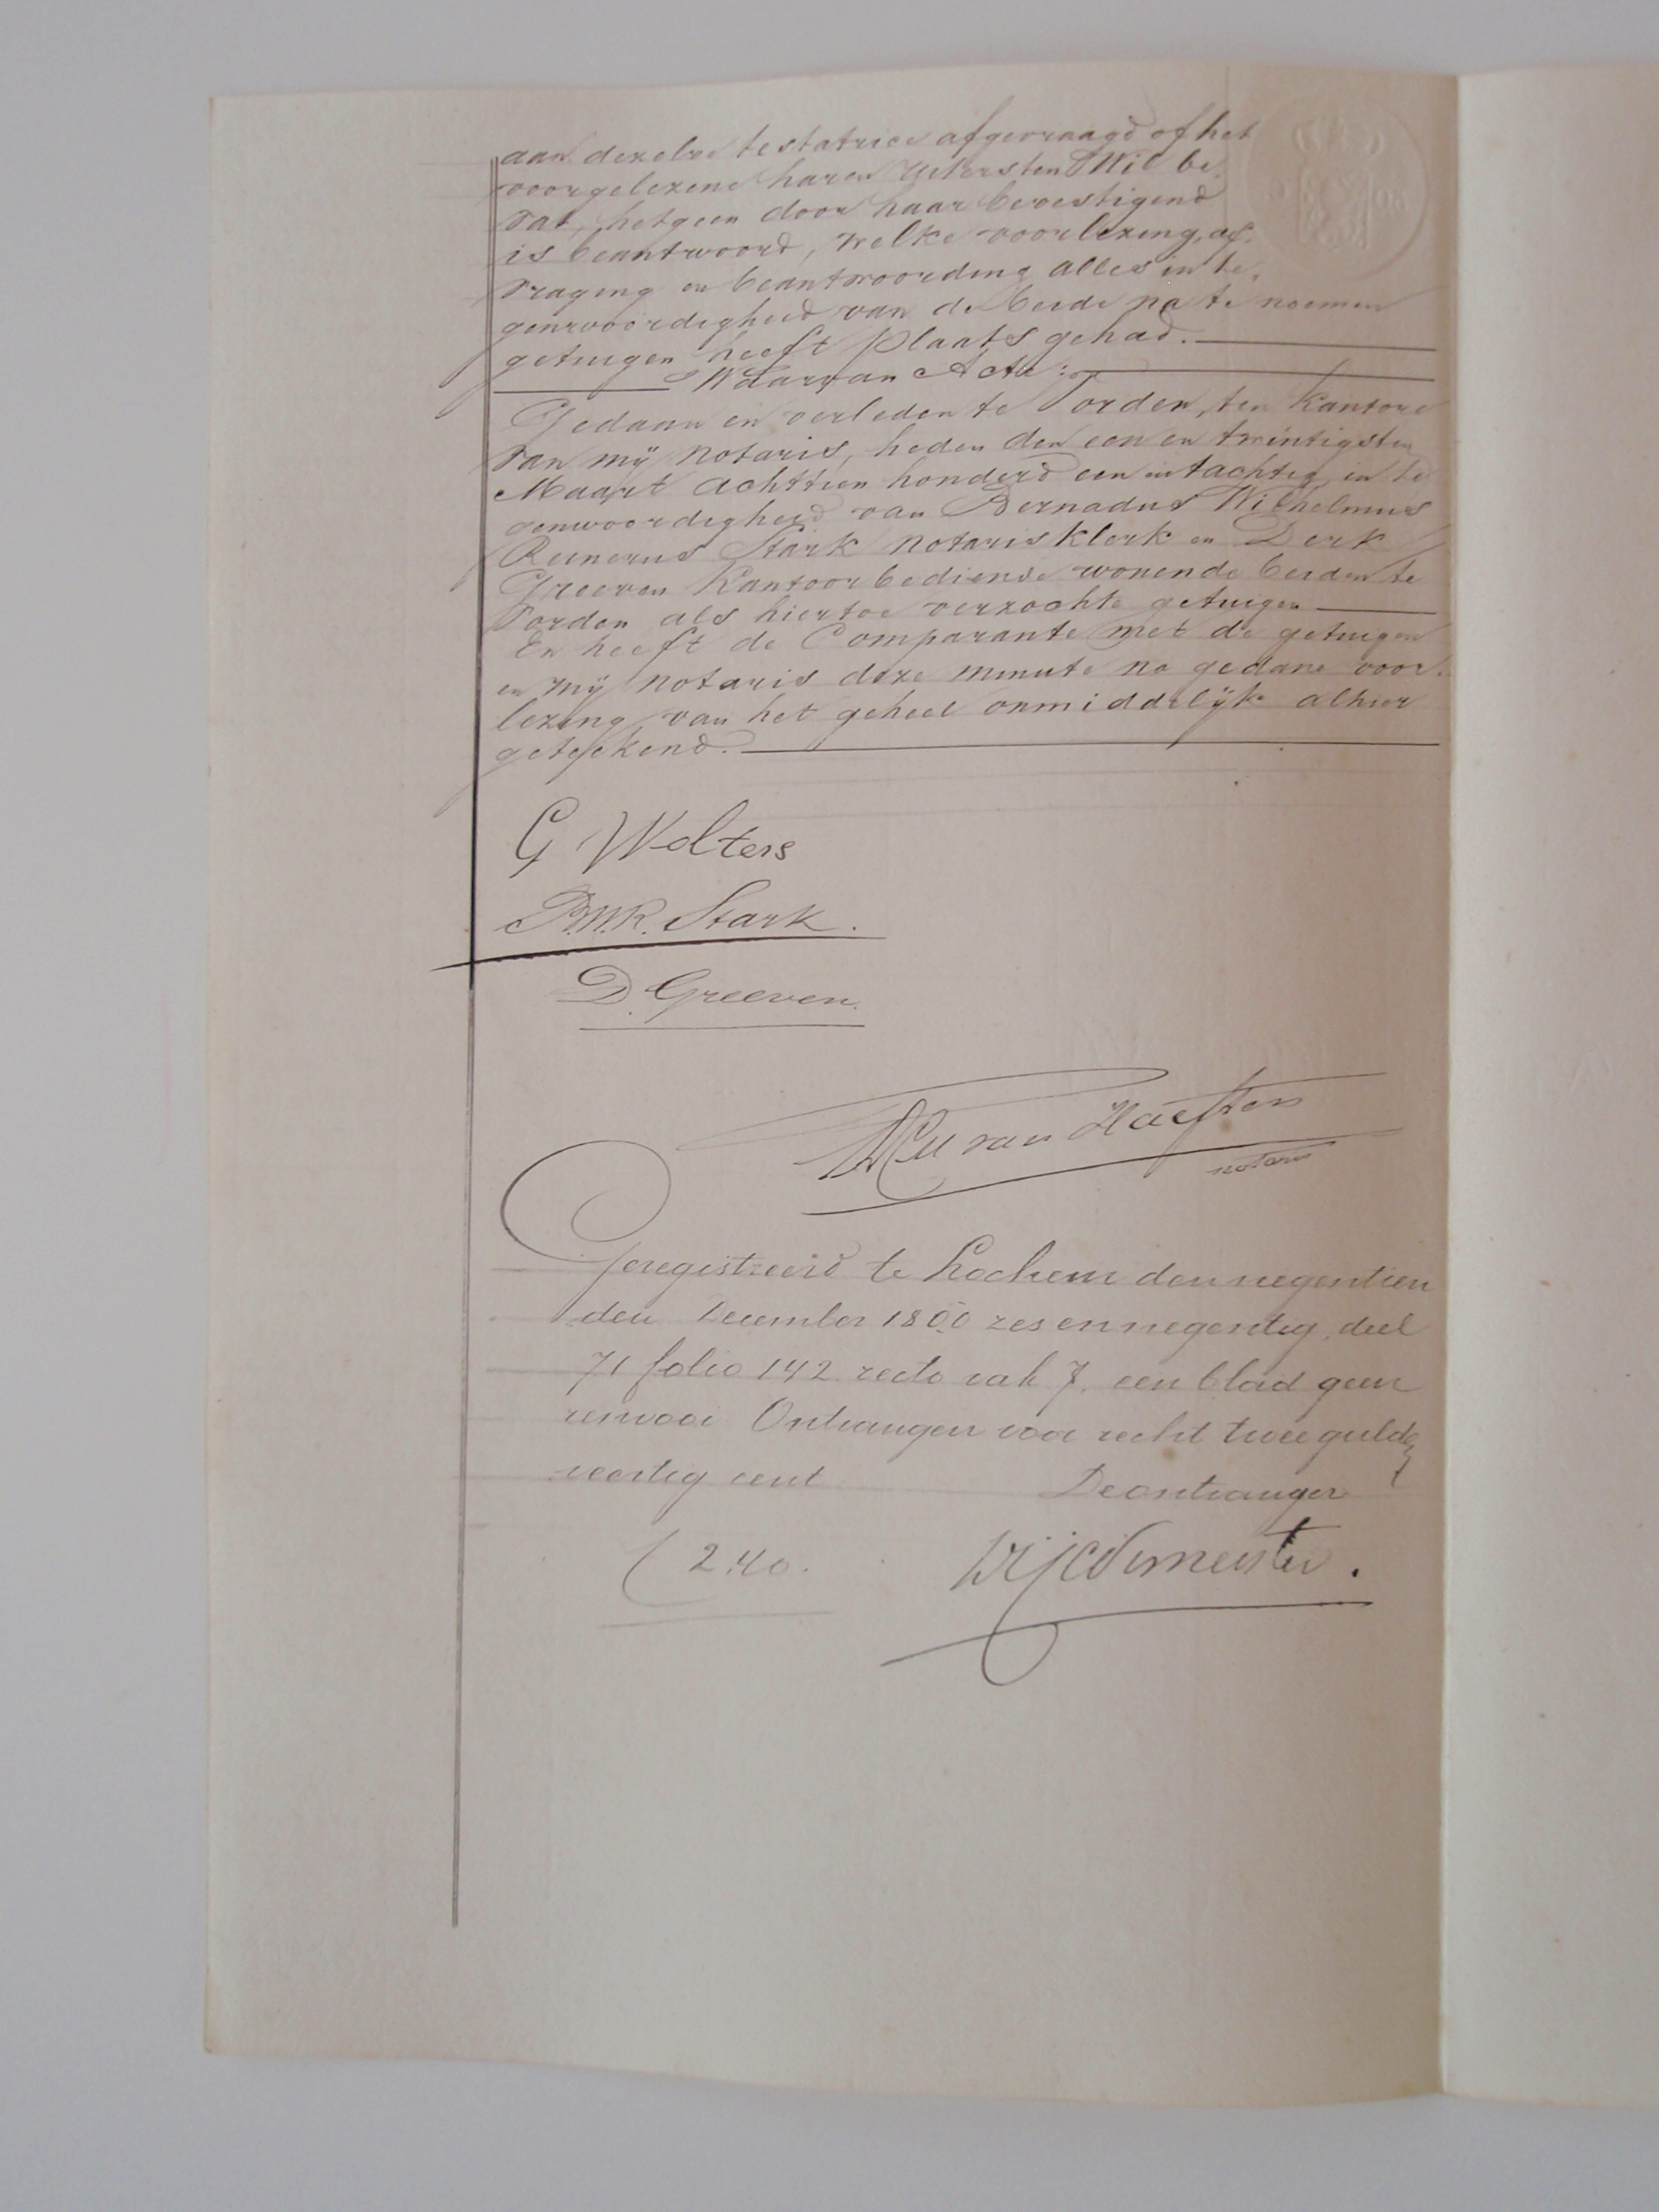 aan dezelve testatrice afgevraagd of het
voorgelezene haren Uitersten Wil be
vat, hetgeen door haar bevestigend
is beantwoord, welke voorlezing, af.
vraging en beantwoording alles in te.
genwoordigheid van de beide na te noemen
getuigen heeft plaats gehad.
Waarvan Acte:
Gedaan en verleden te Vorden, ten kantore
van mij notaris, heden den een en twintigsten
Maart achttien honderd een en tachtig, in te
genwoordigheid van Bernadus Wilhelmus
Reinerus Stark notarisklerk en Derk
Greeven Kantoorbediende wonende beiden te
Vorden als hiertoe verzochte getuigen
En heeft de Comparante met de getuigen
en mij notaris deze minute na gedane voor.
lezing van het geheel onmiddelijk alhier
geteekend.
G Wolters
B.W.R. Stark.
D. Greeven.
van Haeften
notaris
Geregistreerd te Lochem den negentien
den December 1800 zes en negentig, deel
71 folio 142 recto vak 7. een blad geen
renvooi Ontvangen voor recht twee gulden
veertig cent
De ontvanger
f 2.40.